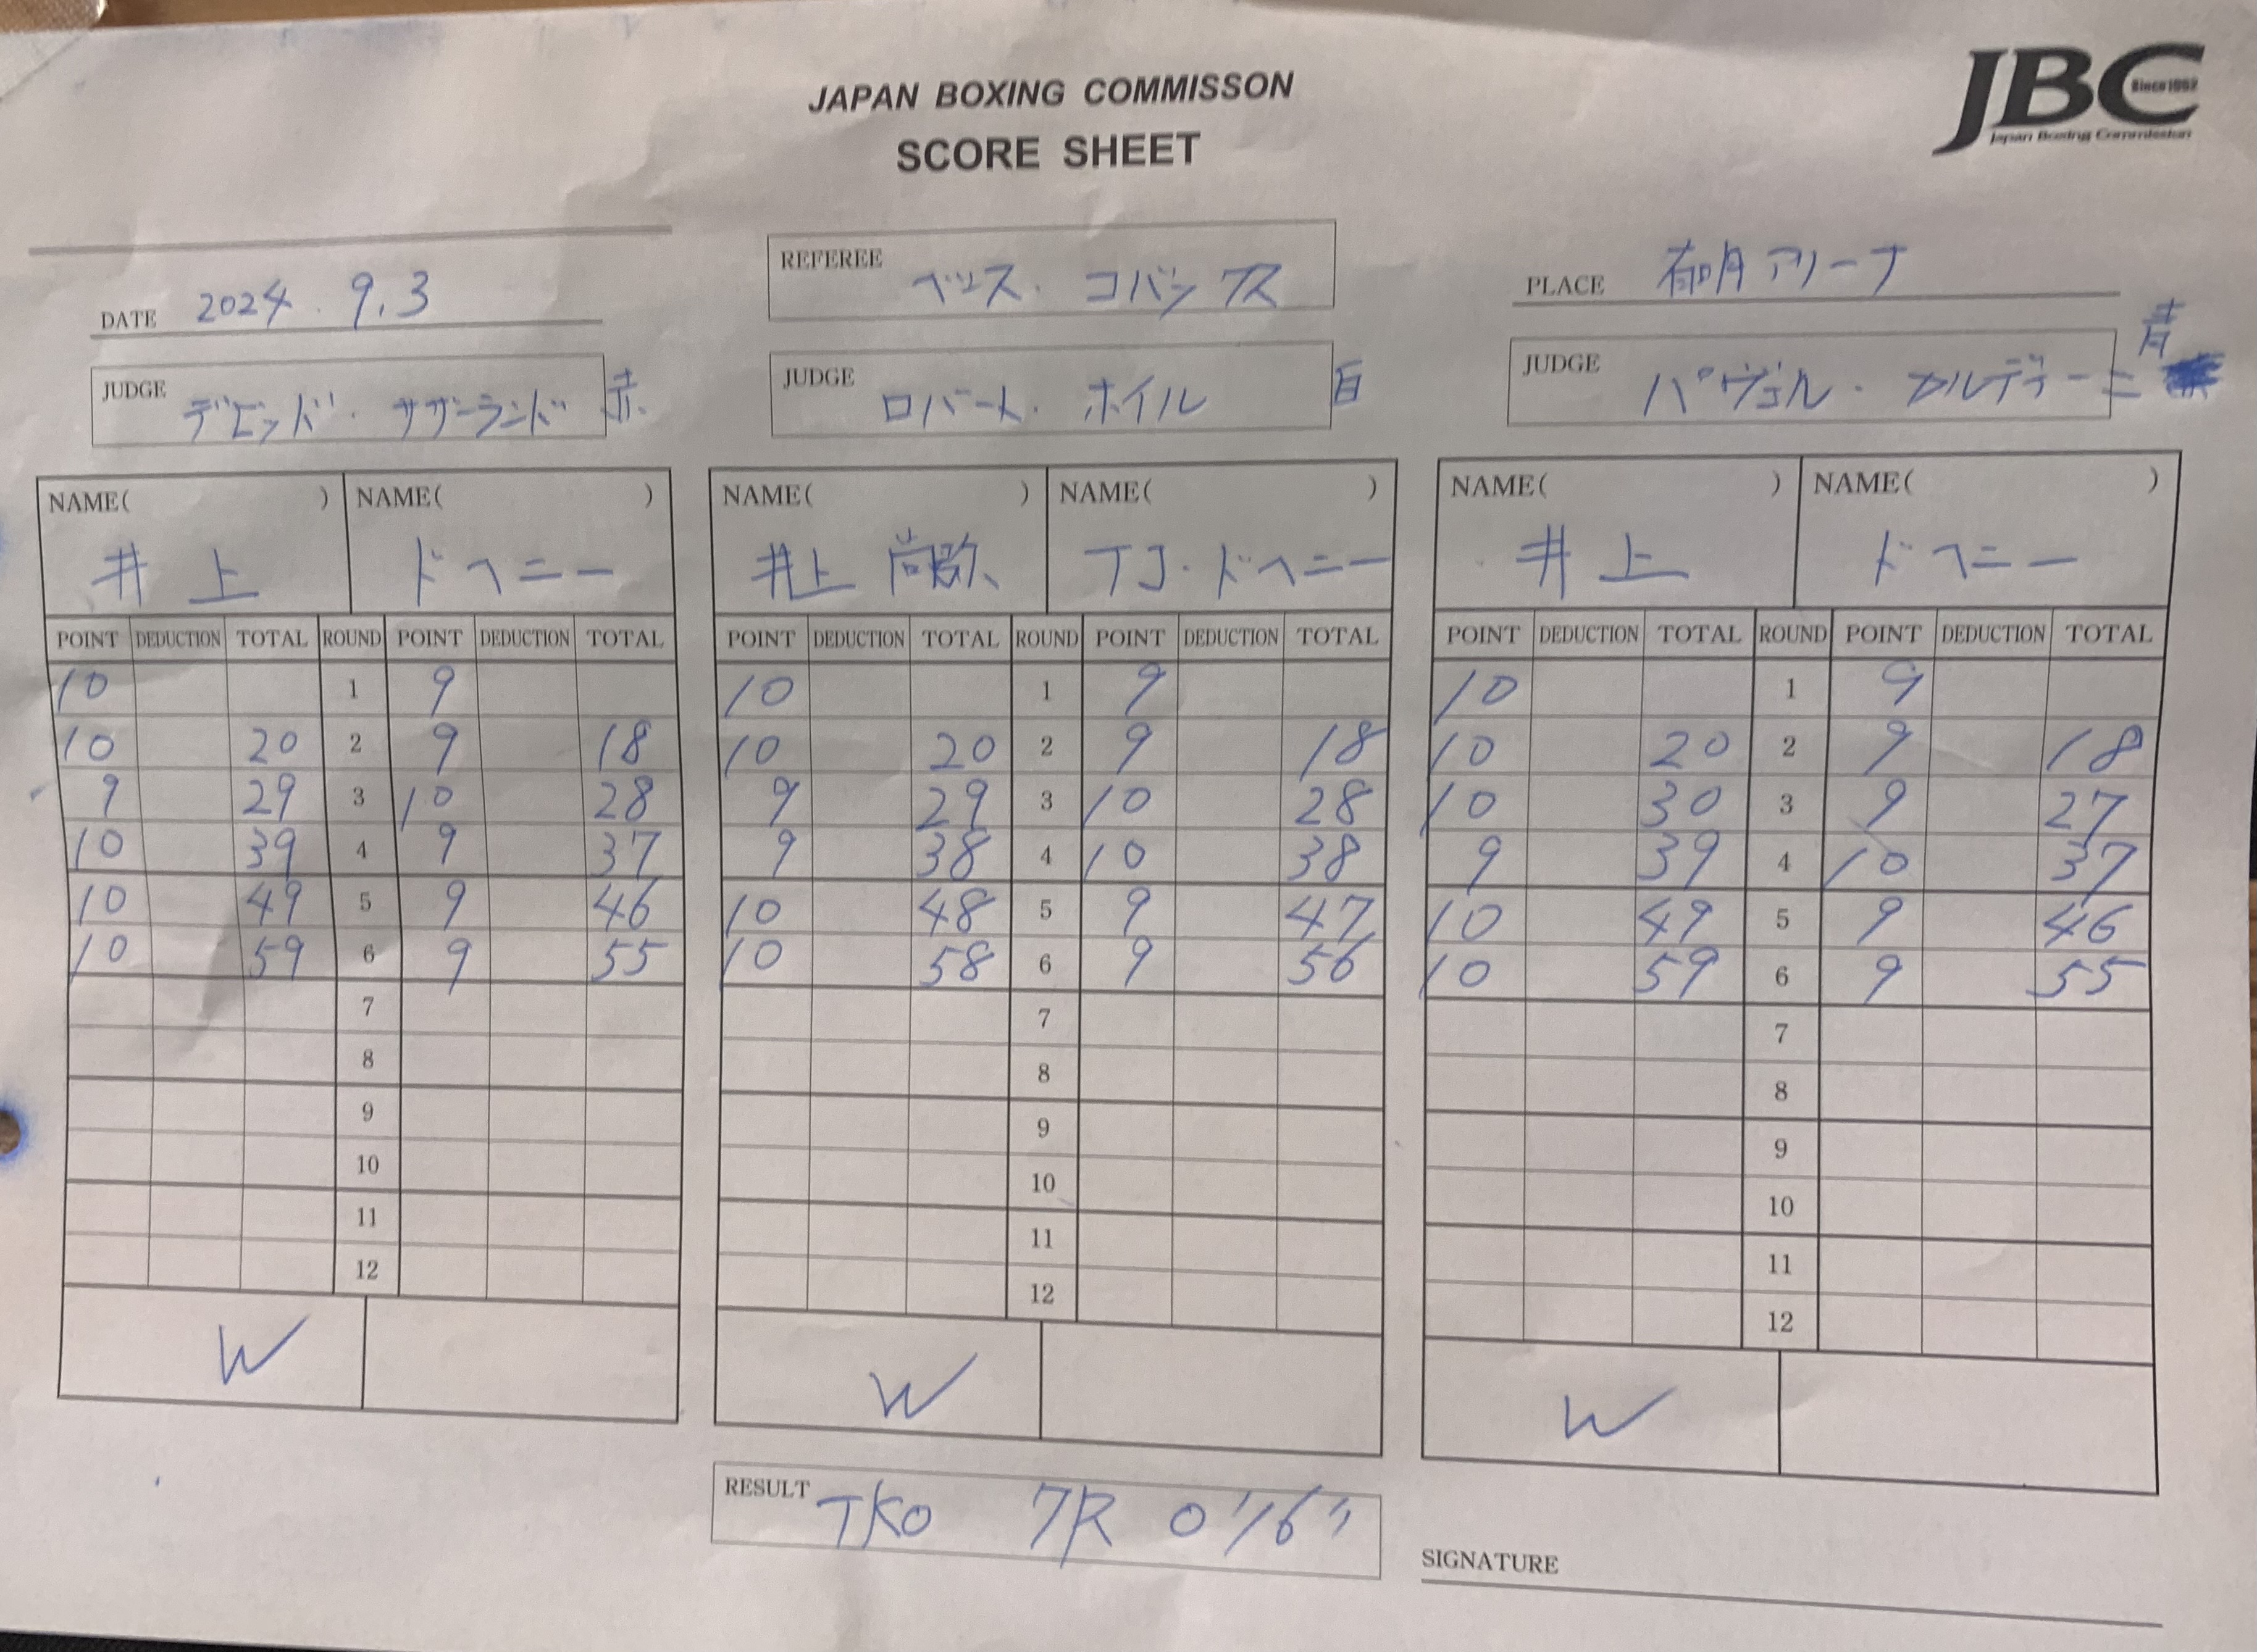 JAPAN BOXING COMMISSON
SCORE SHEET
JBC
Since1952
Japan Boxing Commission
DATE 2024. 9.3
REFEREE ベンス. コバックス
PLACE 有明アリーナ
JUDGE デビッド. サザーランド 赤
JUDGE ロバート. ホイル 白
JUDGE パヴェル. カルディーニ 青
NAME( ) NAME( ) NAME( ) NAME( ) NAME( ) NAME( )
井上 ドヘニー 井上尚弥 TJ.ドヘニー 井上 ドヘニー
POINT DEDUCTION TOTAL ROUND POINT DEDUCTION TOTAL POINT DEDUCTION TOTAL ROUND POINT DEDUCTION TOTAL POINT DEDUCTION TOTAL ROUND POINT DEDUCTION TOTAL
10 1 9 10 1 9 10 1 9
10 20 2 9 18 10 20 2 9 18 10 20 2 9 18
9 29 3 10 28 9 29 3 10 28 10 30 3 9 27
10 39 4 9 37 9 38 4 10 38 9 39 4 10 37
10 49 5 9 46 10 48 5 9 47 10 49 5 9 46
10 59 6 9 55 10 58 6 9 56 10 59 6 9 55
7 7 7
8 8 8
9 9 9
10 10 10
11 11 11
12 12 12
W W W
RESULT TKO 7R 0'16"
SIGNATURE